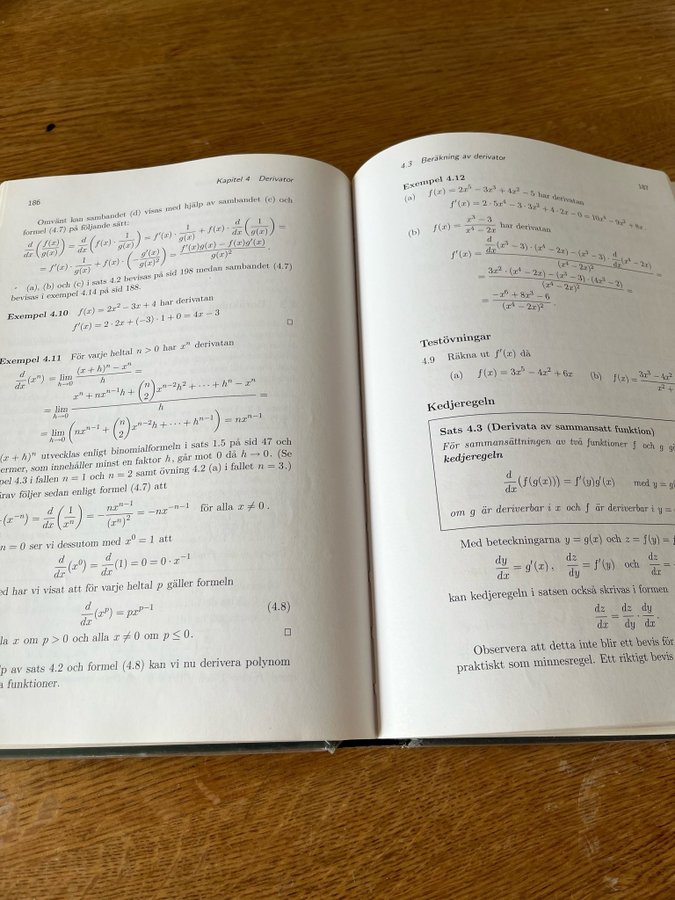 186
Kapitel 4 Derivator
Omvänt kan sambandet (d) visas med hjälp av sambandet (c) och
formel (4.7) på följande sätt:
d/dx (f(x)/g(x)) = d/dx (f(x) · 1/g(x)) = f′(x) · 1/g(x) + f(x) · d/dx (1/g(x)) =
= f′(x) · 1/g(x) + f(x) · (−g′(x)/g(x)²) = (f′(x)g(x) − f(x)g′(x))/g(x)² .
(a), (b) och (c) i sats 4.2 bevisas på sid 198 medan sambandet (4.7)
bevisas i exempel 4.14 på sid 188.
Exempel 4.10 f(x) = 2x² − 3x + 4 har derivatan
f′(x) = 2 · 2x + (−3) · 1 + 0 = 4x − 3
□
Exempel 4.11 För varje heltal n > 0 har xⁿ derivatan
d/dx (xⁿ) = lim h→0 ((x + h)ⁿ − xⁿ)/h =
= lim h→0 (xⁿ + nxⁿ⁻¹h + (n 2)xⁿ⁻²h² + ··· + hⁿ − xⁿ)/h =
= lim h→0 (nxⁿ⁻¹ + (n 2)xⁿ⁻²h + ··· + hⁿ⁻¹) = nxⁿ⁻¹
(x + h)ⁿ utvecklas enligt binomialformeln i sats 1.5 på sid 47 och
ermer, som innehåller minst en faktor h, går mot 0 då h → 0. (Se
pel 4.3 i fallen n = 1 och n = 2 samt övning 4.2 (a) i fallet n = 3.)
ärav följer sedan enligt formel (4.7) att
(x⁻ⁿ) = d/dx (1/xⁿ) = −nxⁿ⁻¹/(xⁿ)² = −nx⁻ⁿ⁻¹ för alla x ≠ 0 .
n = 0 ser vi dessutom med x⁰ = 1 att
d/dx (x⁰) = d/dx (1) = 0 = 0 · x⁻¹
ed har vi visat att för varje heltal p gäller formeln
d/dx (xᵖ) = pxᵖ⁻¹ (4.8)
la x om p > 0 och alla x ≠ 0 om p ≤ 0.
□
lp av sats 4.2 och formel (4.8) kan vi nu derivera polynom
a funktioner.
4.3 Beräkning av derivator
187
Exempel 4.12
(a) f(x) = 2x⁵ − 3x³ + 4x² − 5 har derivatan
f′(x) = 2 · 5x⁴ − 3 · 3x² + 4 · 2x − 0 = 10x⁴ − 9x² + 8x .
(b) f(x) = (x³ − 3)/(x⁴ − 2x) har derivatan
f′(x) = (d/dx (x³ − 3) · (x⁴ − 2x) − (x³ − 3) · d/dx (x⁴ − 2x))/(x⁴ − 2x)² =
= (3x² · (x⁴ − 2x) − (x³ − 3) · (4x³ − 2))/(x⁴ − 2x)² =
= (−x⁶ + 8x³ − 6)/(x⁴ − 2x)² .
Testövningar
4.9 Räkna ut f′(x) då
(a) f(x) = 3x⁵ − 4x² + 6x (b) f(x) = 3x³ − 4x² / x² +
Kedjeregeln
Sats 4.3 (Derivata av sammansatt funktion)
För sammansättningen av två funktioner f och g gä
kedjeregeln
d/dx (f(g(x))) = f′(y)g′(x) med y = g(
om g är deriverbar i x och f är deriverbar i y =
Med beteckningarna y = g(x) och z = f(y) = f
dy/dx = g′(x) , dz/dy = f′(y) och dz/dx =
kan kedjeregeln i satsen också skrivas i formen
dz/dx = dz/dy · dy/dx .
Observera att detta inte blir ett bevis för
praktiskt som minnesregel. Ett riktigt bevis